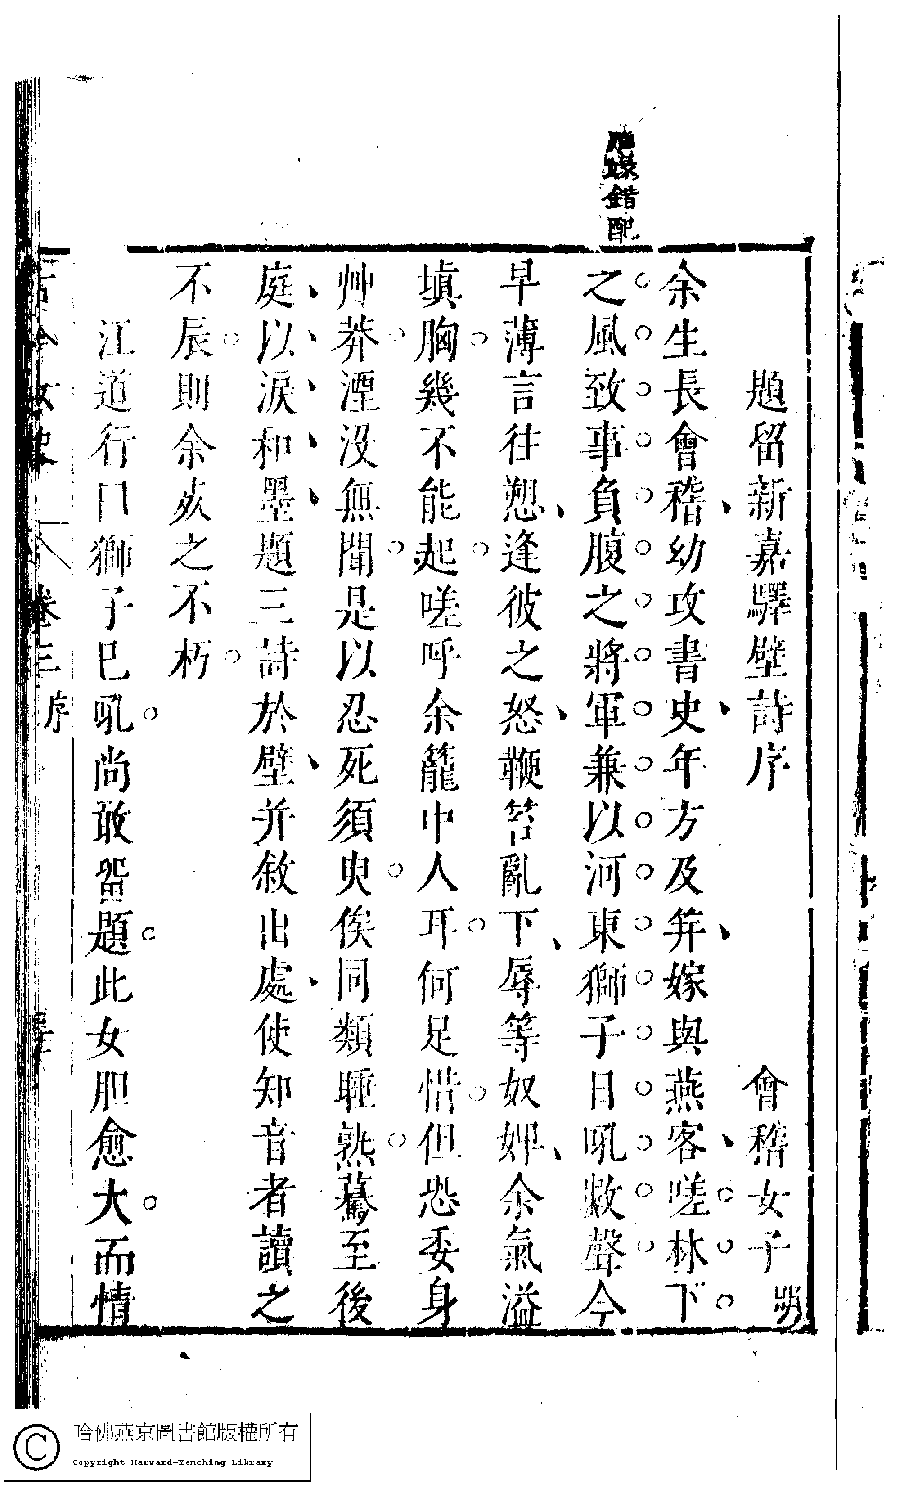 題留新嘉驛壁詩序
會稽女子 明
余生長會稽幼攻書史年方及笄嫁與燕客嗟林下
之風致事負腹之將軍兼以河東獅子日吼數聲今
早薄言往愬逢彼之怒鞭笞亂下辱等奴婢余氣溢
填胸幾不能起嗟呼余籠中人耳何足惜但恐委身
艸莽湮沒無聞是以忍死須臾俟同類睡熟驀至後
庭以淚和墨題三詩於壁并敘出處使知音者讀之
不辰則余歿之不朽
江道行曰獅子已吼尚敢留題此女胆愈大而情
錯配
卷三 序
哈佛燕京圖書館版權所有
Copyright Harvard-Yenching Library